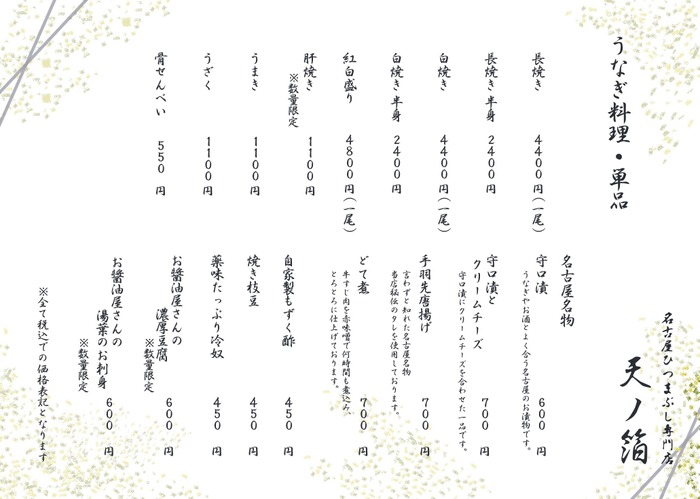 うなぎ料理・単品
長焼き 4400円(一尾)
長焼き半身 2400円
白焼き 4400円(一尾)
白焼き半身 2400円
紅白盛り 4800円(一尾)
肝焼き 1100円
※数量限定
うまき 1100円
うざく 1100円
骨せんべい 550円
名古屋ひつまぶし専門店
天ノ箔
名古屋名物
守口漬 600円
うなぎやお酒とよく合う名古屋のお漬物です。
守口漬と
クリームチーズ 700円
守口漬にクリームチーズを合わせた一品です。
手羽先唐揚げ 700円
言わずと知れた名古屋名物
当店秘伝のタレを使用しております。
どて煮 700円
牛すじ肉を赤味噌で何時間も煮込み、
とろとろに仕上げております。
自家製もずく酢 450円
焼き枝豆 450円
薬味たっぷり冷奴 450円
お醤油屋さんの
濃厚豆腐 600円
※数量限定
お醤油屋さんの
湯葉のお刺身 600円
※数量限定
※全て税込での価格表記となります